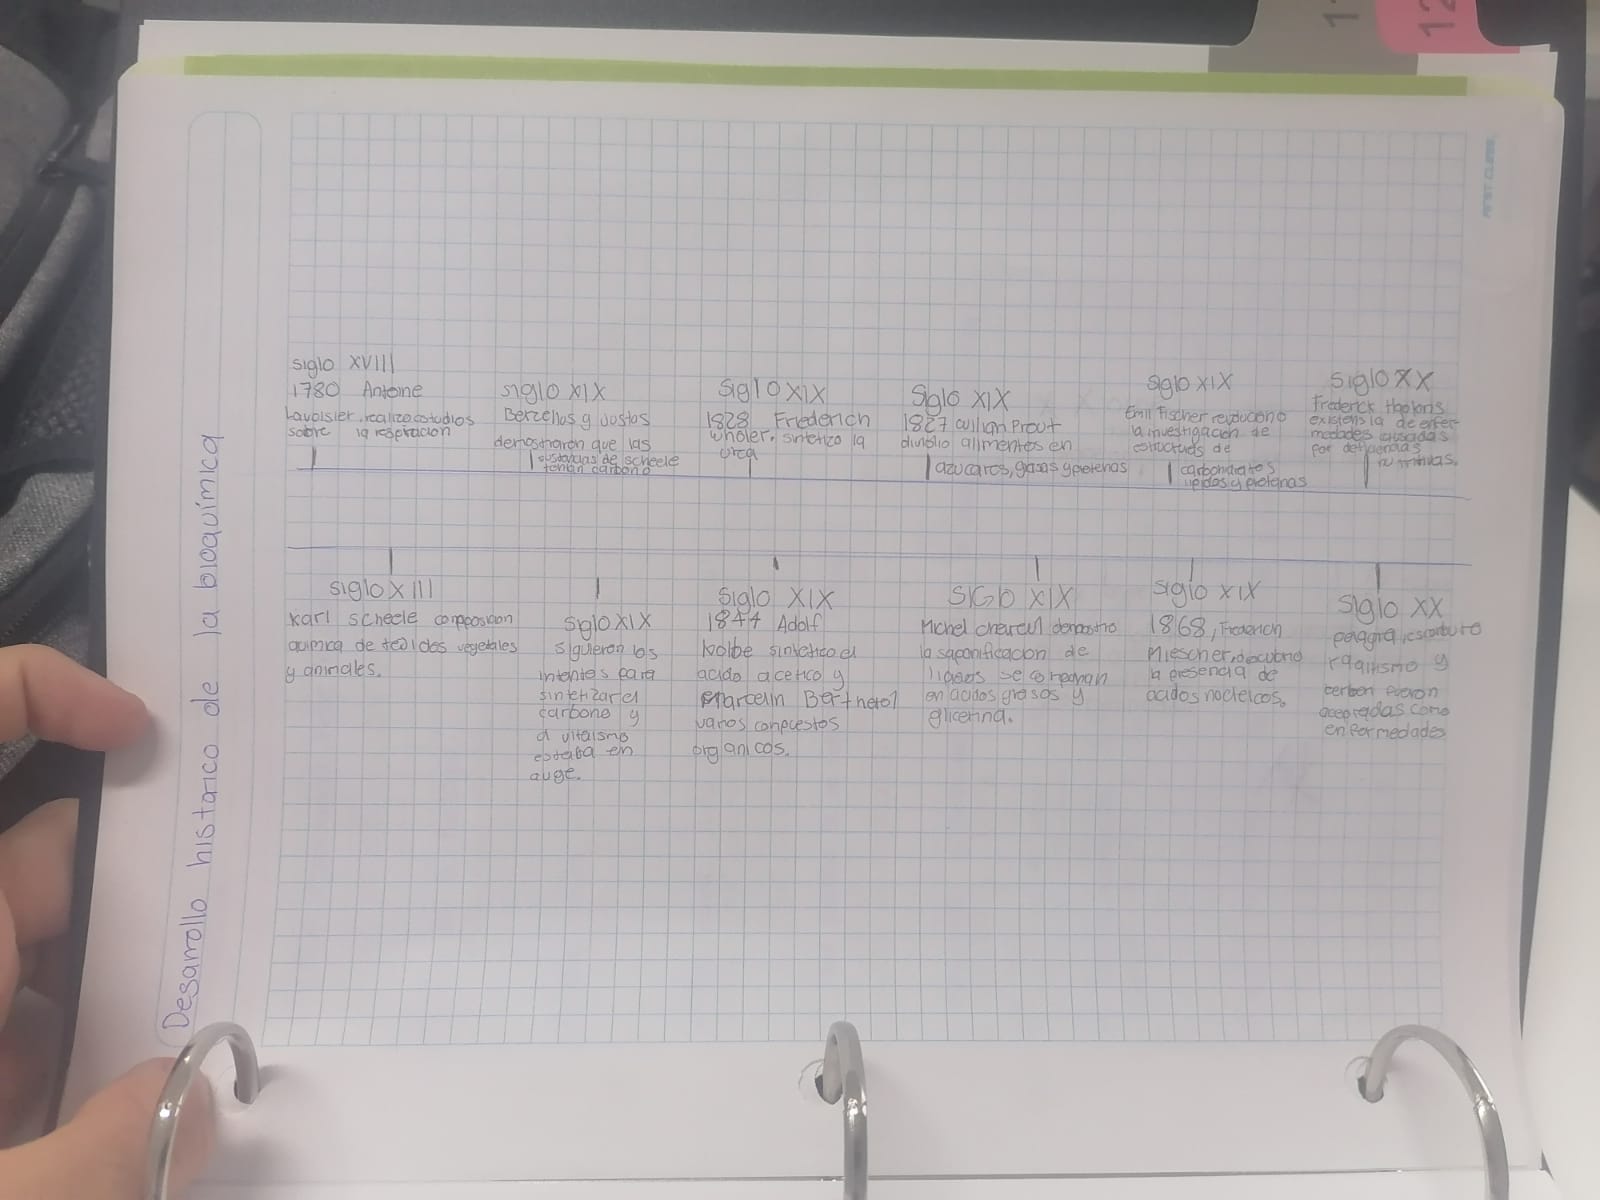 11
12
Desarrollo historico de la bioquímica
siglo XVIII
1780 Antoine
Lavoisier. realizo estudios
sobre la respiracion
siglo XIX
Berzelius y Justos
demostraron que las
sustancias de scheele
tenian carbono
Siglo XIX
1828 Frederich
Whöler. sintetizo la
urea
Siglo XIX
1827 willian Prout
dividio alimentos en
azucares, grasas y
siglo XIX
Emil Fischer
la investigacion de
de
carbohidratos
lipidos y proteinas
siglo XX
Frederick
de enfer-
medades causadas
por
nutritivas.
siglo XIII
Karl scheele composicion
quimica de vegetales
y animales.
siglo XIX
siguieron los
intentos para
sintetizar el
carbono y
el vitalismo
estaba en
auge.
Siglo XIX
1844 Adolf
Kolbe sintetico el
acido acetico y
Marcelin
varios compuestos
organicos.
SIGLO XIX
Michel
la saponificacion de
se
en acidos grasos y
glicerina.
siglo XIX
1868, Frederich
Miescher. descubrio
la presencia de
acidos
siglo XX
y
como
enfermedades